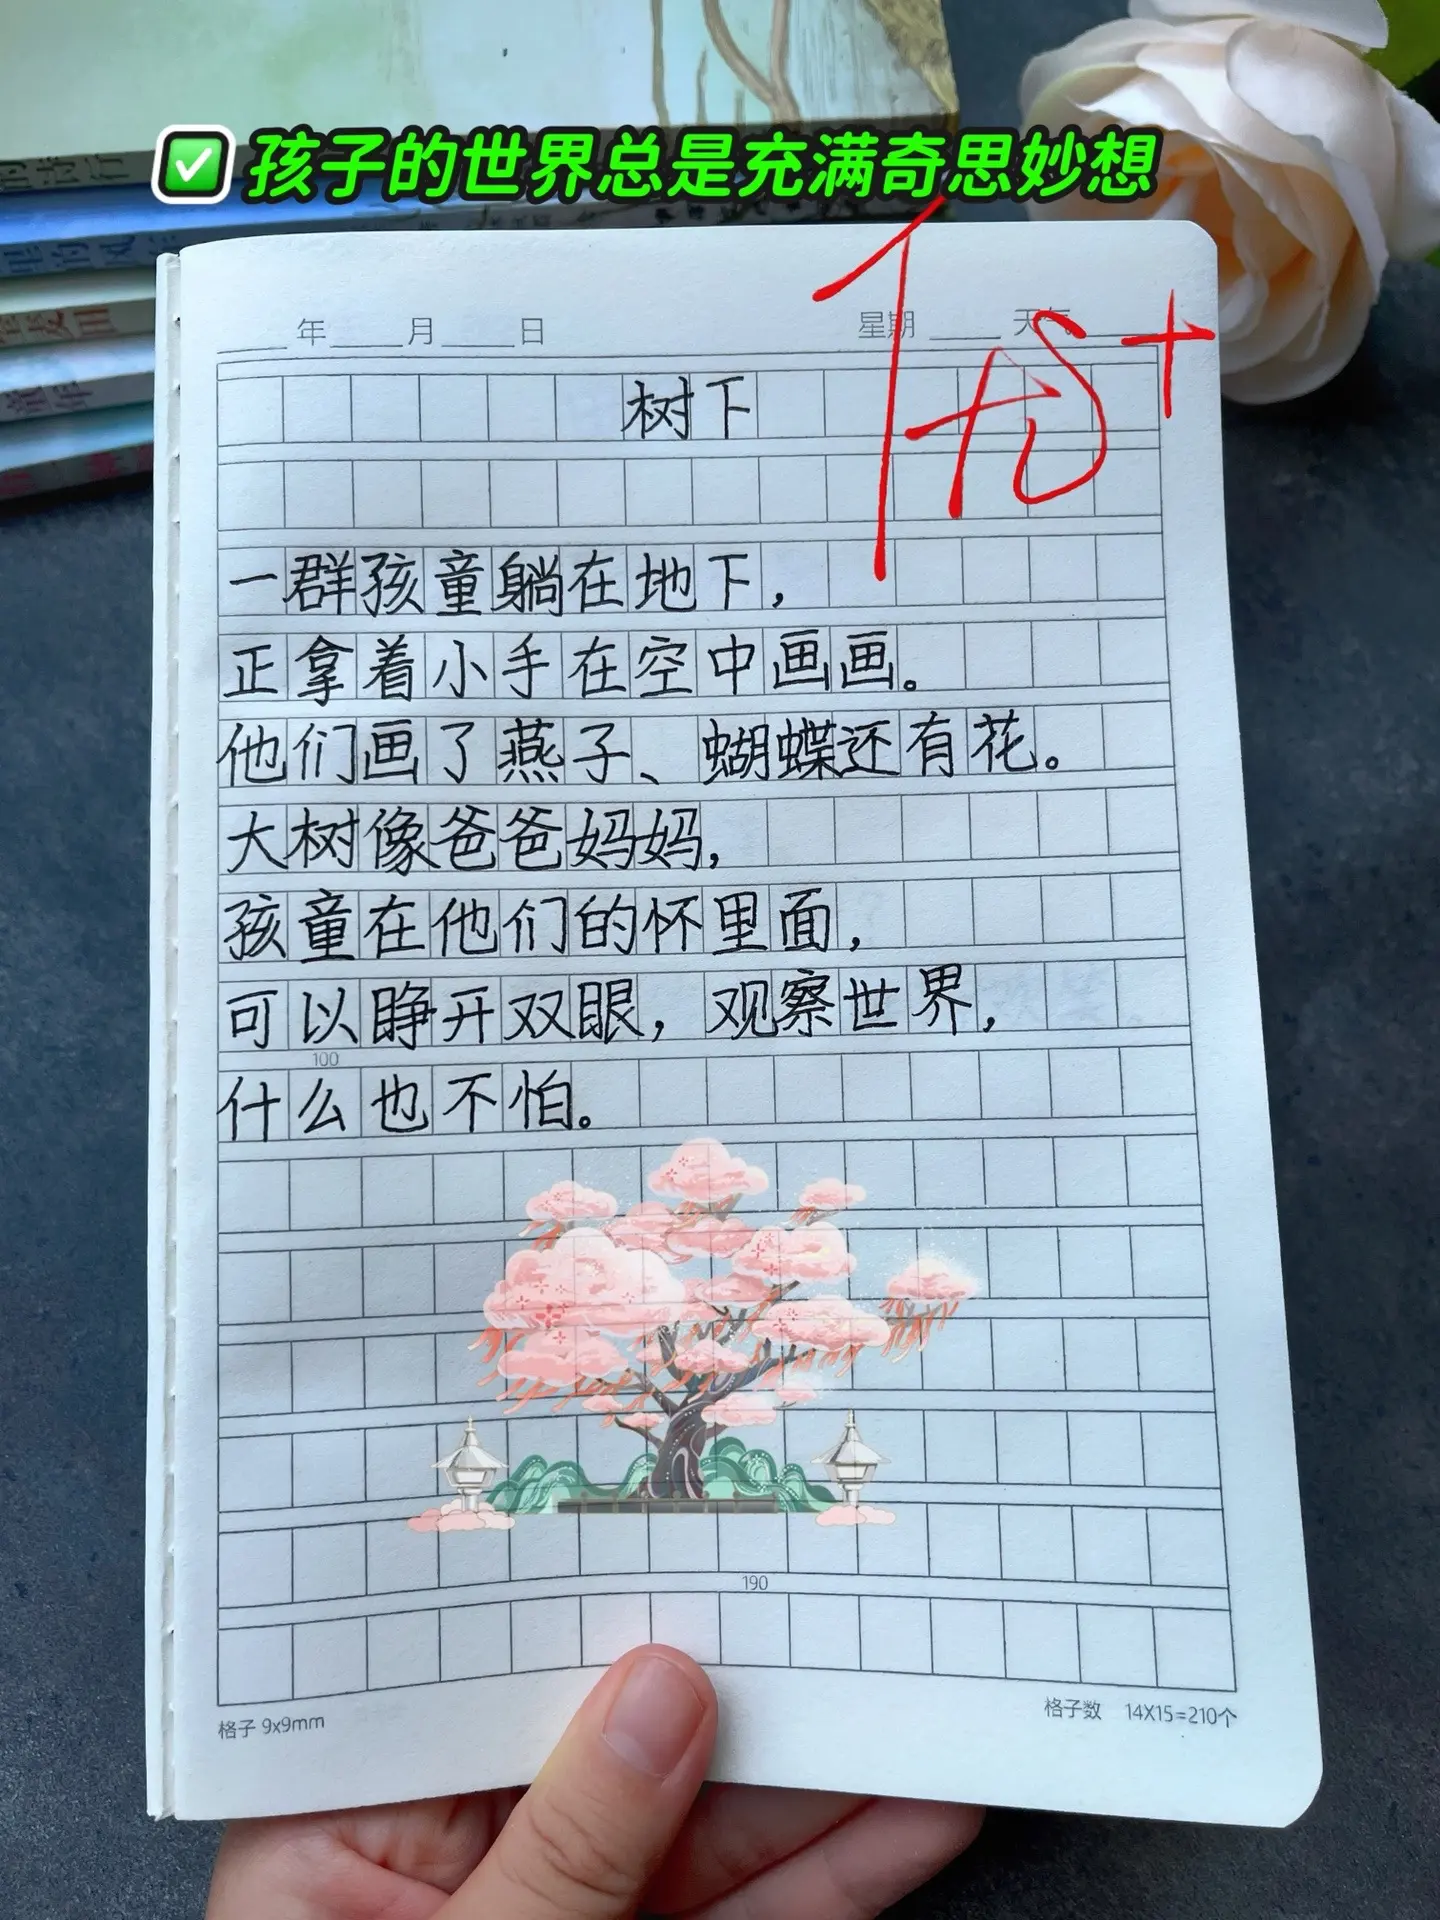 ✅孩子的世界总是充满奇思妙想
年 月 日 星期 天气
树下
一群孩童躺在地下，
正拿着小手在空中画画。
他们画了燕子、蝴蝶还有花。
大树像爸爸妈妈，
孩童在他们的怀里面，
可以睁开双眼，观察世界，
100
什么也不怕。
190
格子 9x9mm 格子数 14X15=210个